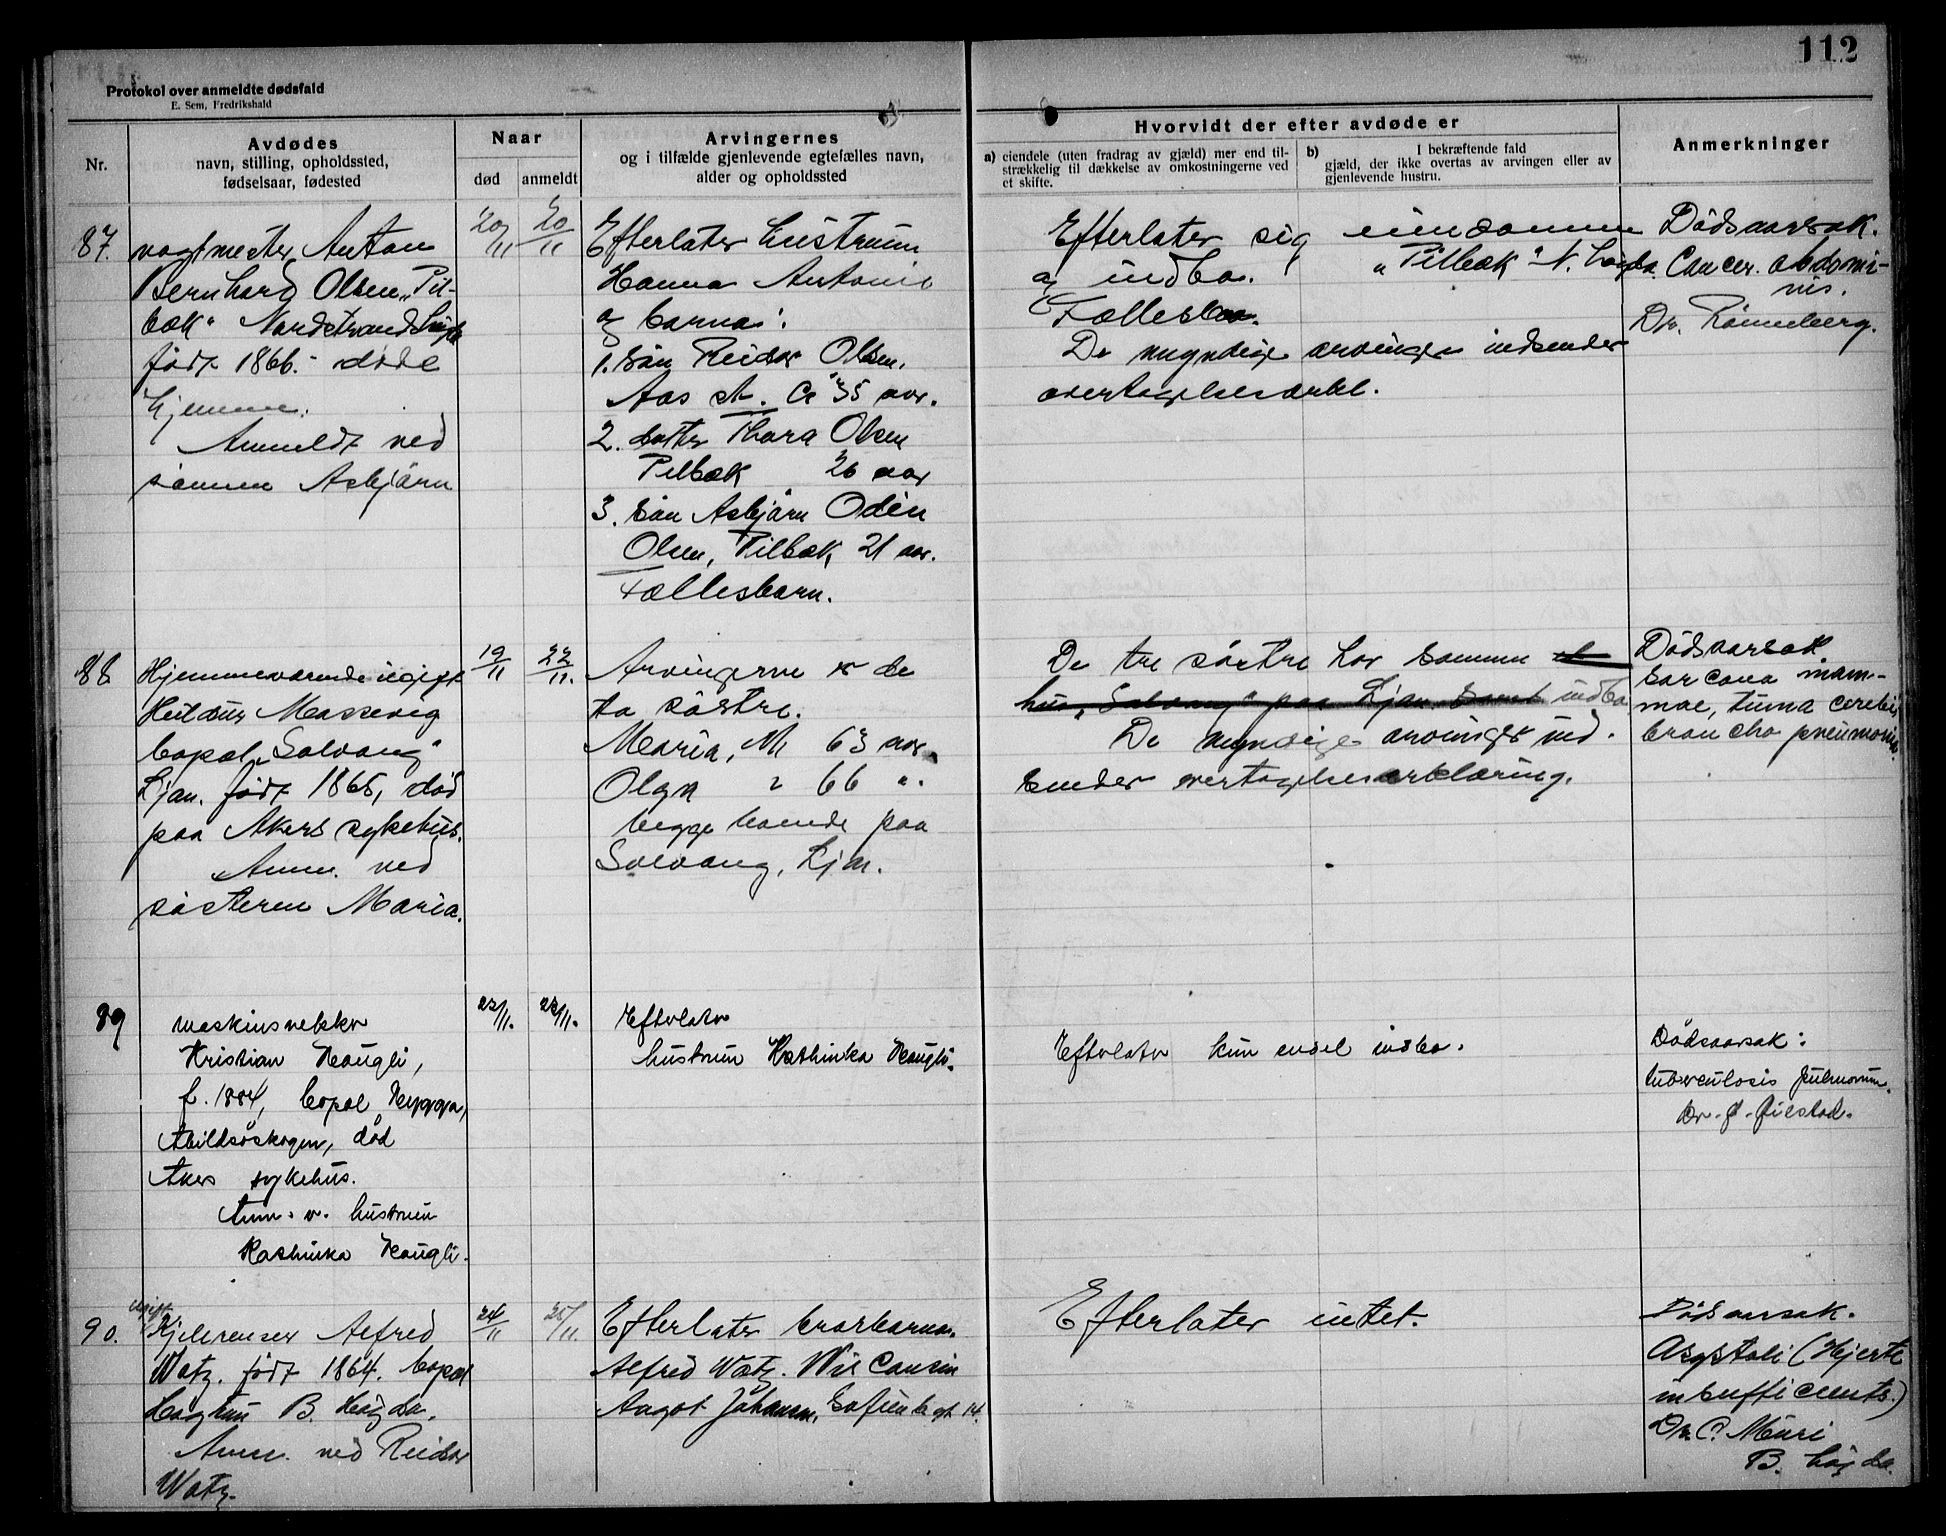 112
Protokol over anmeldte dødsfald
E. Sem, Fredrikshald
Nr.
Avdødes
navn, stilling, opholdssted,
fødselsaar, fødested
Naar
død
anmeldt
Arvingernes
og i tilfælde gjenlevende egtefælles navn,
alder og opholdssted
Hvorvidt der efter avdøde er
a) eiendele (uten fradrag av gjæld) mer end til-
strækkelig til dækkelse av omkostningerne ved
et skifte.
b) I bekræftende fald
gjæld, der ikke overtas av arvingen eller av
gjenlevende hustru.
Anmerkninger
87.
vagtmester Anton
Bernhard Olsen „Pil-
bæk“ Nordstrandshøgda
født 1866. døde
hjemme.
Anmeldt ved
sønnen Asbjørn
20/11
20/11
Efterlater hustruen
Hanna Antonie
og barna:
1. søn Reidar Olsen.
Aas st. Ca 35 aar.
2. datter Thora Olsen
Pilbæk 26 aar
3. søn Asbjørn Odin
Olsen, Pilbæk 21 aar.
Fællesbarn.
Efterlater sig eiendommen
og indbo. „Pilbæk“ N. høgda.
Fællesbo.
De myndige arvinger indsender
overtagelseserkl.
Dødsaarsak.
Cancer. abdomi-
nis.
Dr. Rønneberg.
88.
Hjemmeværende ugift
Huldur Massevig
bopæl „Solvang“
Ljan. født 1865, død
paa Akers sykehus.
Anm. ved
søsteren Maria.
19/11
22/11.
Arvingerne er de
to søstre.
Maria, M 63 aar.
Olga " 66 ".
begge boende paa
Solvang, Ljan.
De tre søstre har sammen et
hus „Solvang“ paa Ljan. Samt indbo
De myndige arvinger ind-
sender overtagelseserklæring.
Dødsaarsak
Sarcoma mam-
mae, tuma cerebri,
broncho pneumonia.
89
maskinsnekker
Kristian Haugli,
f. 1884, bopæl Hygga,
Abildsøskogen, død
Akers sykehus.
Anm. v. hustruen
Kathinka Haugli.
22/11.
23/11.
Efterlater
hustruen Kathinka Haugli.
Efterlater kun endel indbo.
Dødsaarsak:
tuberculosis pulmonum.
Dr. J. Gilstad.
90.
ugift
Kjelerenser Alfred
Watz. født 1864. bopæl
Haugtun B. Høgda.
Anm. ved Reidar
Watz.
24/11
25/11.
Efterlater brorbarna.
Alfred Watz. Wis Consin
Aagot Johansen, Sofienbgt 14.
Efterlater intet.
Dødsaarsak.
Asystoli (Hjerte
insufficients.)
Dr. C. Muri
B. høgda.